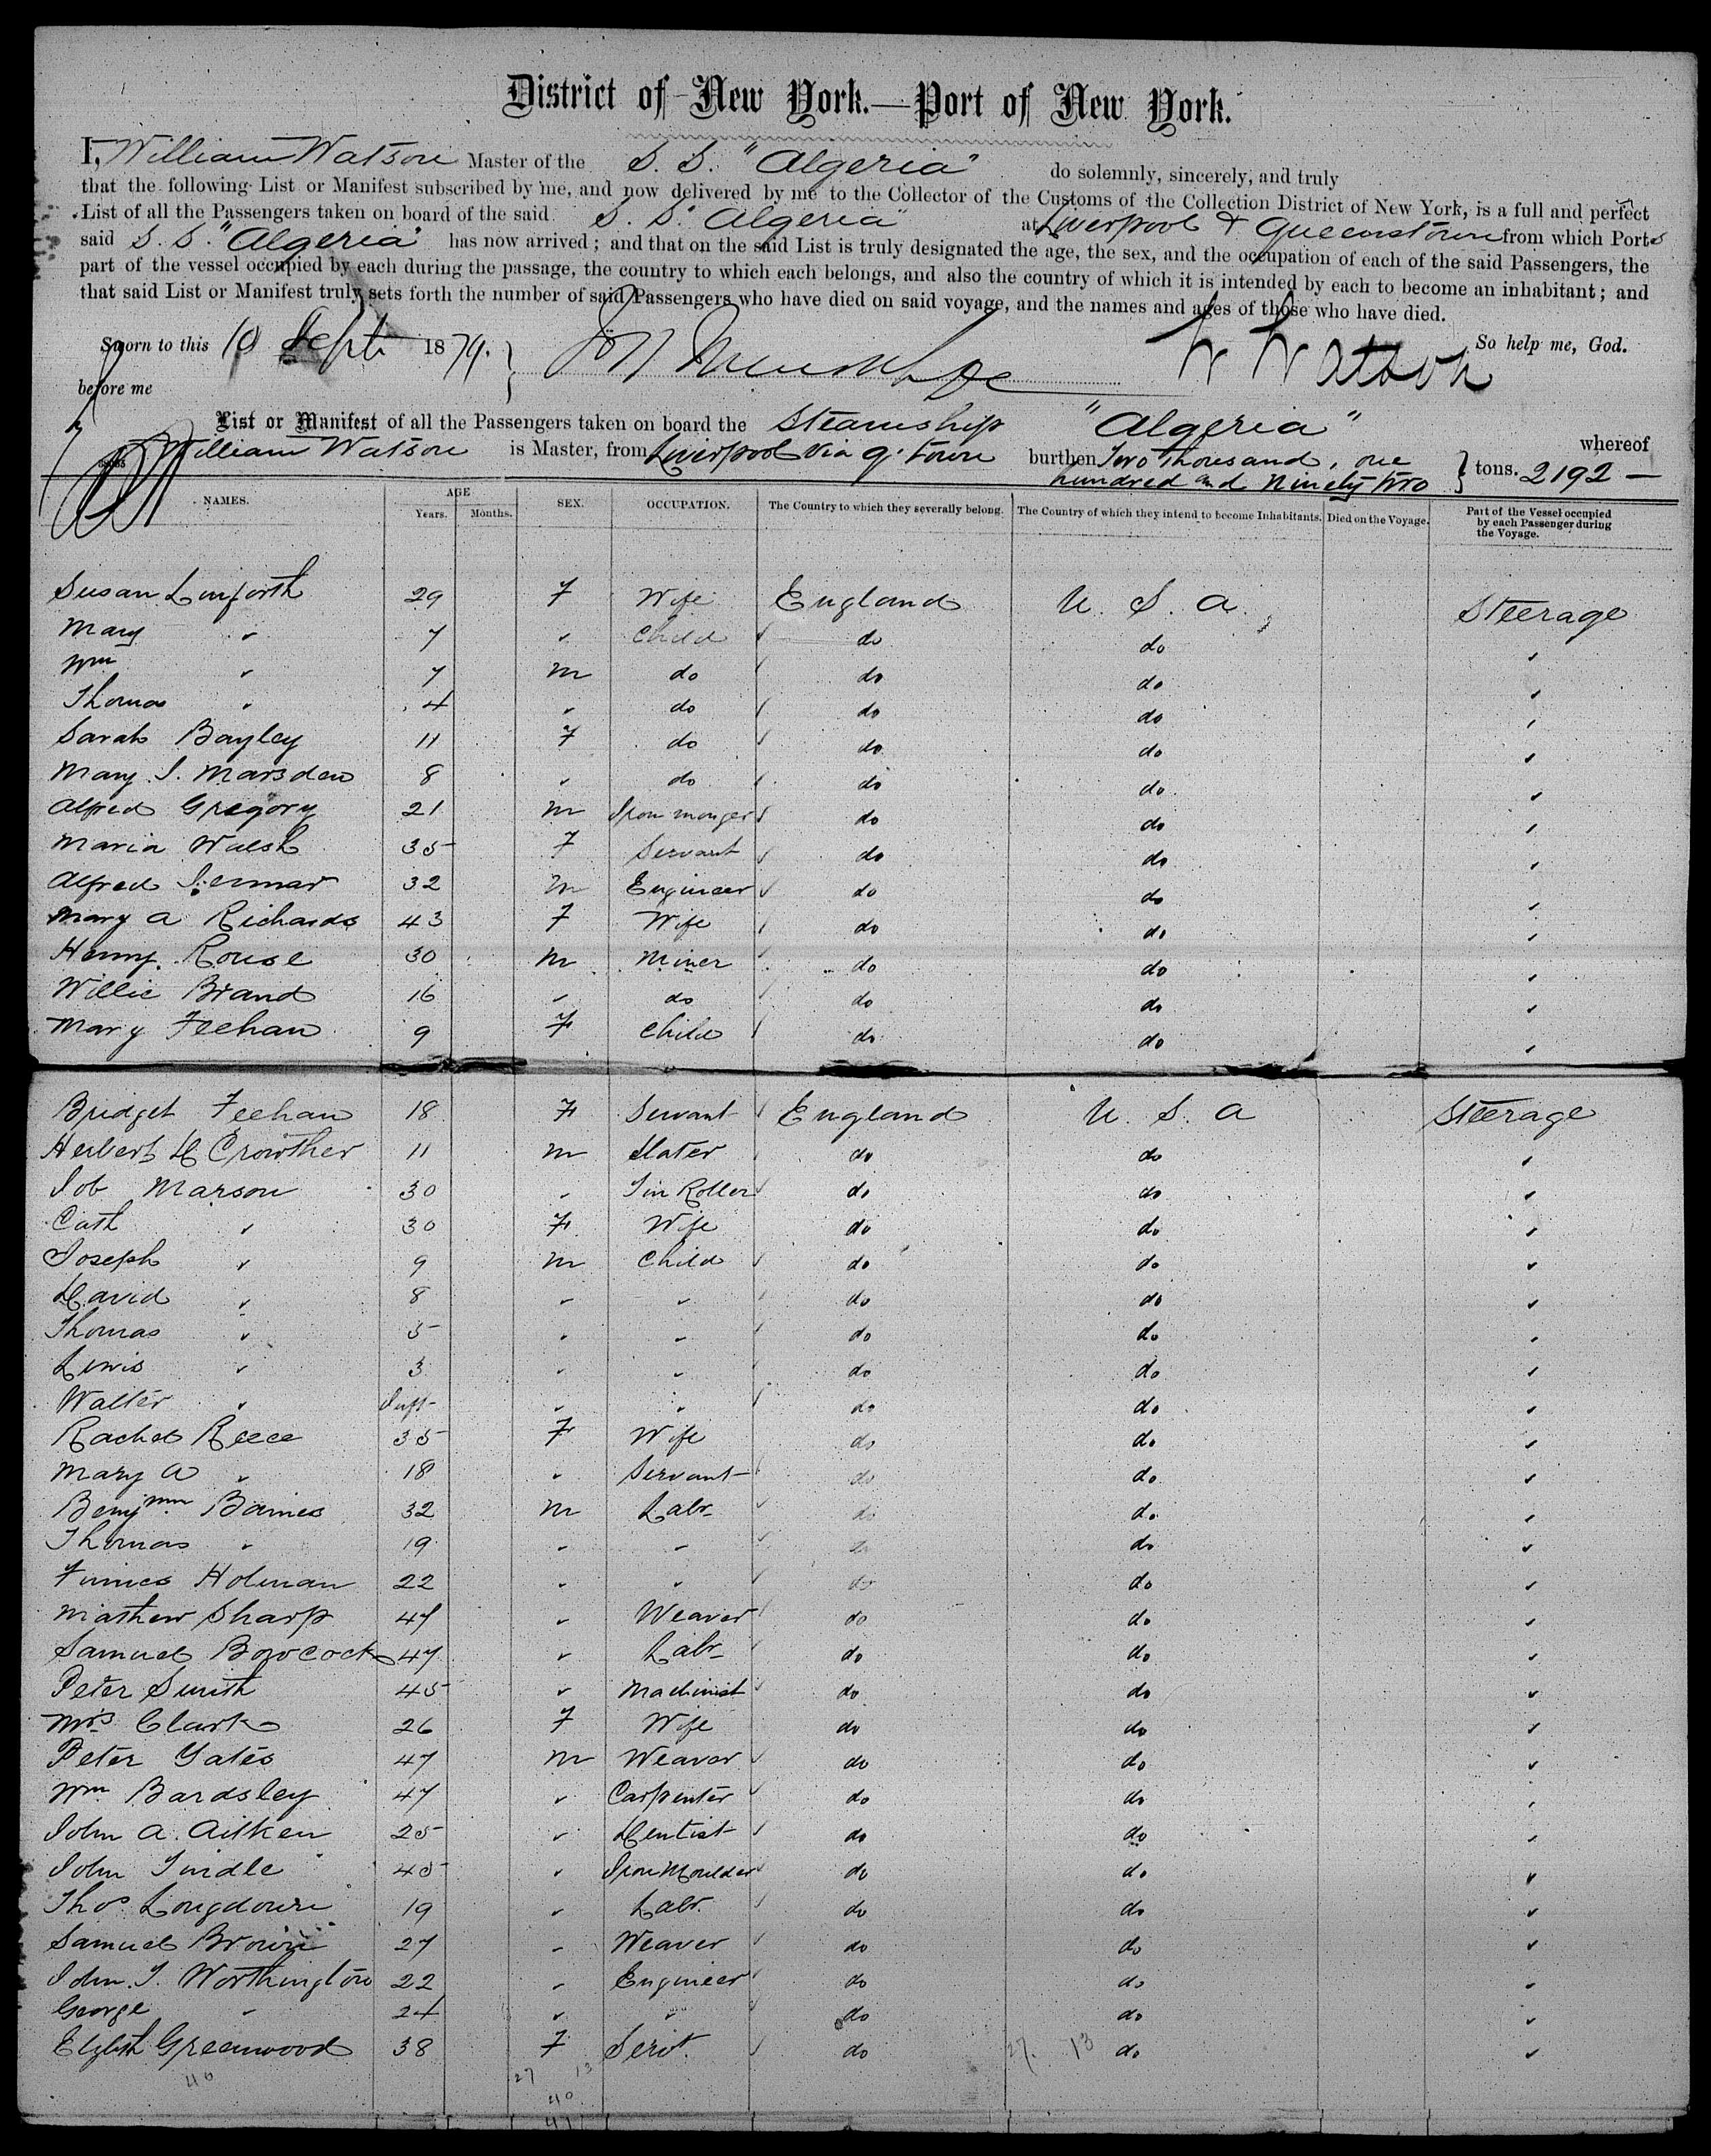 District of New York.—Port of New York.
I, William Watson Master of the S. S. "Algeria" do solemnly, sincerely, and truly
that the following List or Manifest subscribed by me, and now delivered by me to the Collector of the Customs of the Collection District of New York, is a full and perfect
List of all the Passengers taken on board of the said S. S. "Algeria" at Liverpool & Queenstown from which Ports
said S. S. "Algeria" has now arrived; and that on the said List is truly designated the age, the sex, and the occupation of each of the said Passengers, the
part of the vessel occupied by each during the passage, the country to which each belongs, and also the country of which it is intended by each to become an inhabitant; and
that said List or Manifest truly sets forth the number of said Passengers who have died on said voyage, and the names and ages of those who have died.
Sworn to this 10 Sept 1879. W Watson So help me, God.
before me
List or Manifest of all the Passengers taken on board the Steamship "Algeria" whereof
William Watson is Master, from Liverpool via Q. Town burthen Two Thousand, one
hundred and Ninety two } tons. 2192 —
NAMES. AGE Years. Months. SEX. OCCUPATION. The Country to which they severally belong. The Country of which they intend to become Inhabitants. Died on the Voyage. Part of the Vessel occupied by each Passenger during the Voyage.
Susan Linforth 29 F Wife England U. S. A. Steerage
Mary " 7 " Child do do "
Wm " 7 M do do do "
Thomas " 4 " do do do "
Sarah Bayley 11 F do do do "
Mary J. Marsden 8 " do do do "
Alfred Gregory 21 M Iron monger do do "
Maria Walsh 35 F Servant do do "
Alfred 32 M Engineer do do "
Mary A Richards 43 F Wife do do "
Henry Rouse 30 M Miner do do "
Willie Brand 16 " do do do "
Mary Feehan 9 F Child do do "
Bridget Feehan 18 F Servant England U. S. A Steerage
Herbert H Crowther 11 M Slater do do "
Job Marson 30 " Tin Roller do do "
Cath " 30 F Wife do do "
Joseph " 9 M Child do do "
David " 8 " " do do "
Thomas " 5 " " do do "
Lewis " 3 " " do do "
Walter " Inft " " do do "
Rachel Reece 35 F Wife do do "
Mary A " 18 " Servant do do "
Benjmn Baines 32 M Labr do do "
Thomas " 19 " " do do "
Holman 22 " " do do "
Mathew Sharp 47 " Weaver do do "
Samuel Bowcock 47 " Labr do do "
Peter Smith 45 " Machinist do do "
Mrs Clark 26 F Wife do do "
Peter Yates 47 M Weaver do do "
Wm Bardsley 47 " Carpenter do do "
John A. Aitken 25 " Dentist do do "
John Tindle 45 " Iron Moulder do do "
Thos Longdown 19 " Labr. do do "
Samuel Brown 27 " Weaver do do "
John. T. Worthington 22 " Engineer do do "
George " 24 " " do do "
Elzbth Greenwood 38 F Servt. do 27. 13 do "
40 27 13
40